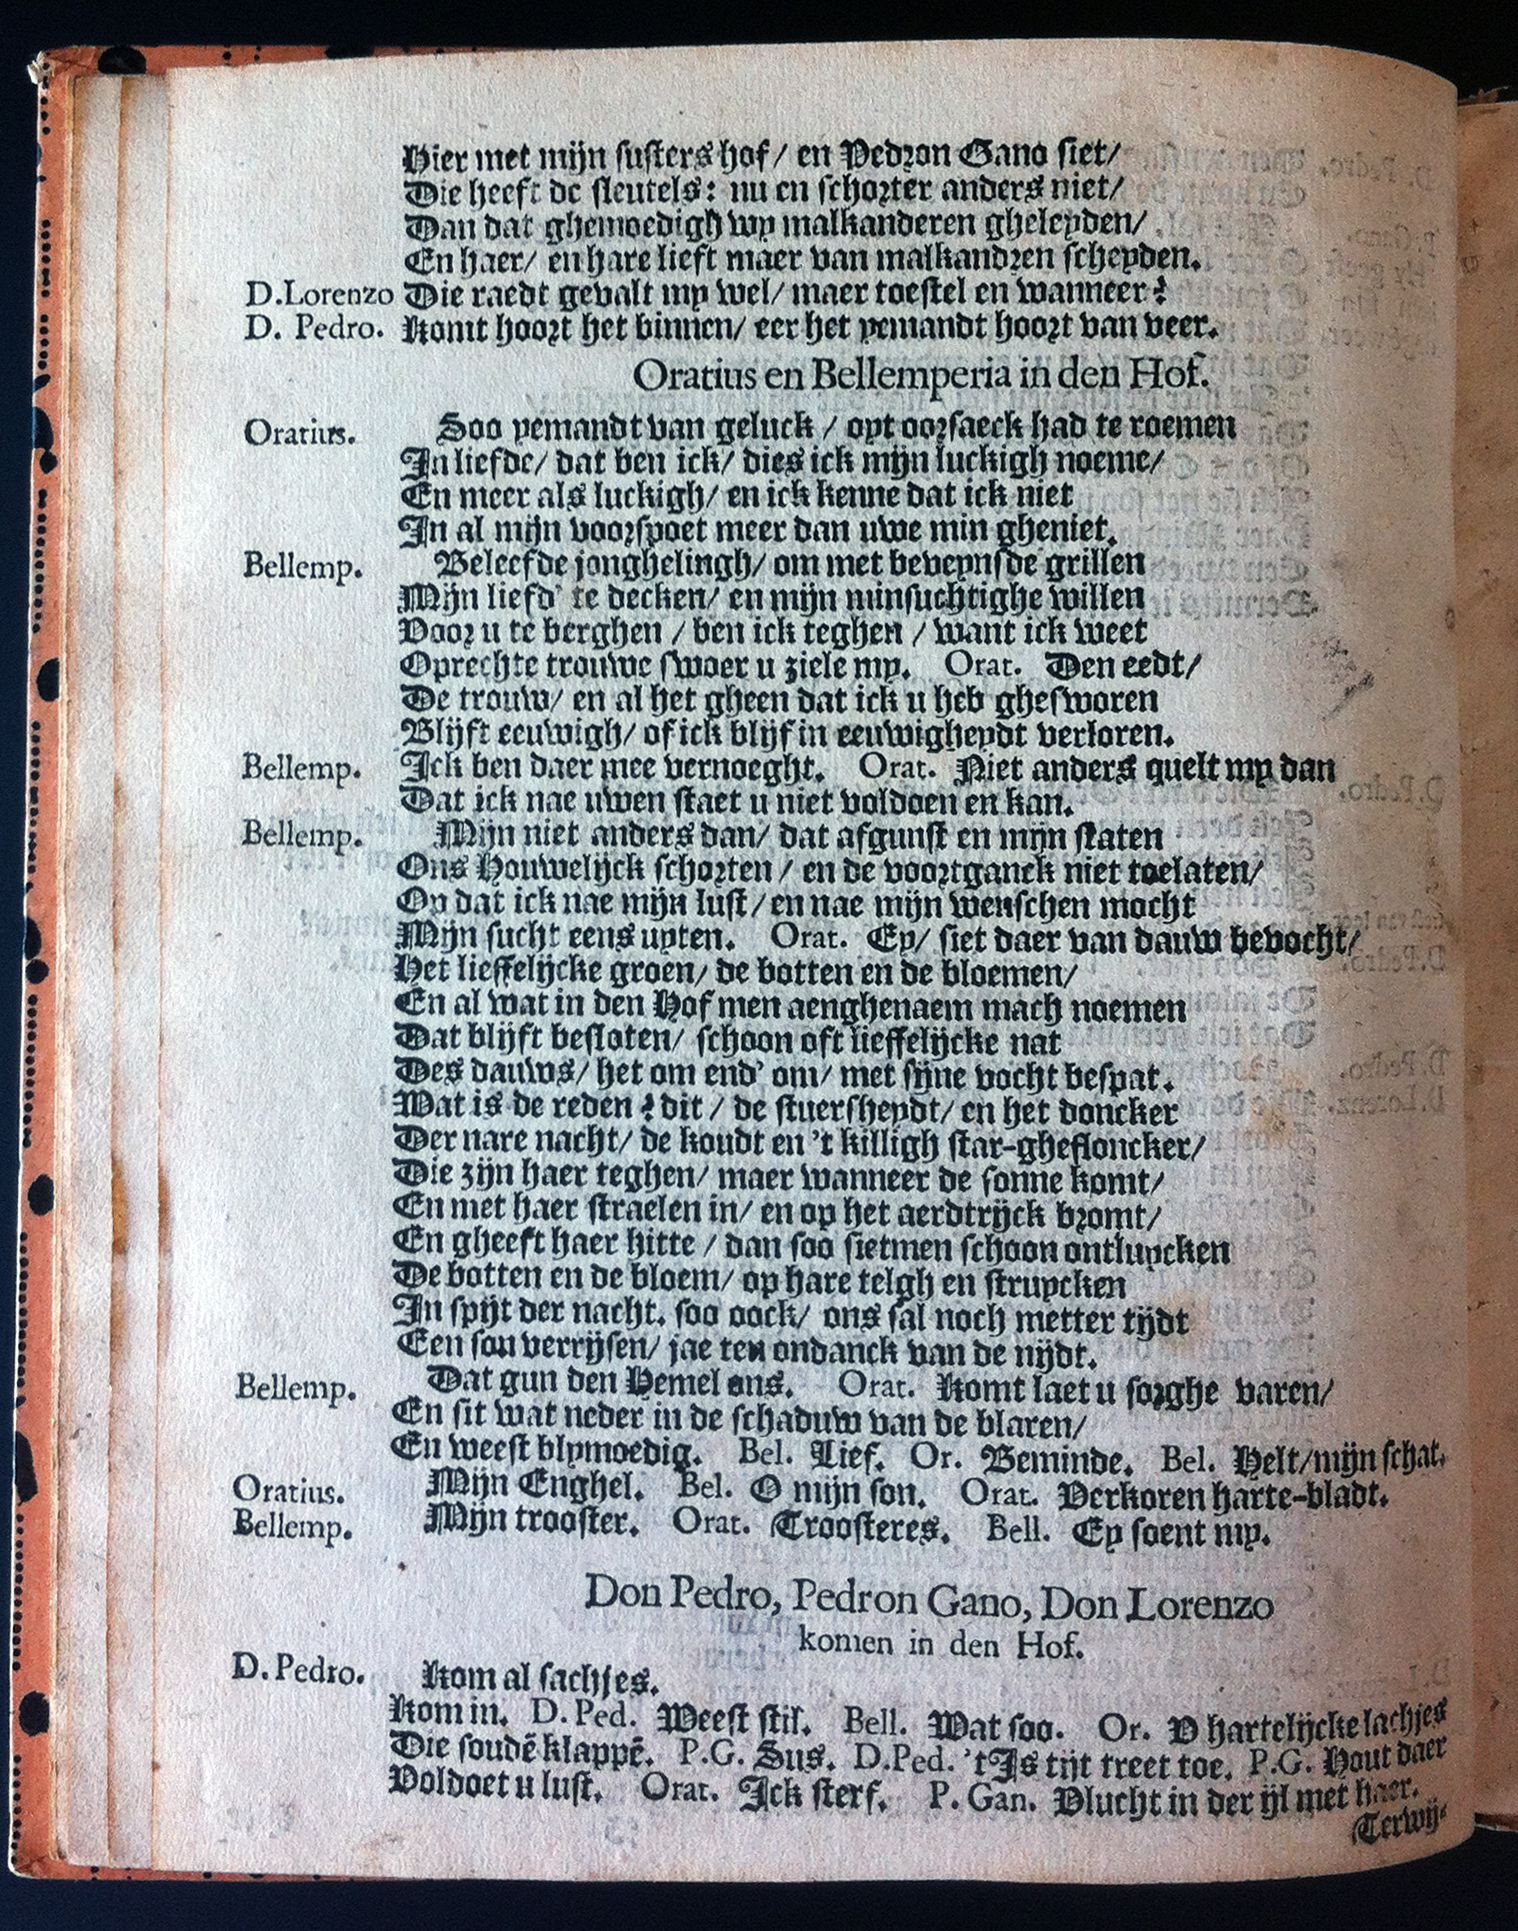 Hier met mijn susters hof/ en Pedron Gano siet/
Die heeft de sleutels: nu en schorter anders niet/
Dan dat ghemoedigh wy malkanderen gheleyden/
En haer/ en hare lieft maer van malkandren scheyden.
D.Lorenzo Die raedt gevalt my wel/ maer toestel en wanneer?
D. Pedro. Komt hoort het binnen/ eer het yemandt hoort van veer.
Oratius en Bellemperia in den Hof.
Oratius. Soo yemandt van geluck / oyt oorsaeck had te roemen
In liefde/ dat ben ick/ dies ick mijn luckigh noeme/
En meer als luckigh/ en ick kenne dat ick niet
In al mijn voorspoet meer dan uwe min gheniet.
Bellemp. Beleefde jonghelingh/ om met beveynsde grillen
Mijn liefd' te decken/ en mijn minsuchtighe willen
Voor u te berghen / ben ick teghen / want ick weet
Oprechte trouwe swoer u ziele my. Orat. Den eedt/
De trouw/ en al het gheen dat ick u heb ghesworen
Blijft eeuwigh/ of ick blijf in eeuwigheydt verloren.
Bellemp. Ick ben daer mee vernoeght. Orat. Niet anders quelt my dan
Dat ick nae uwen staet u niet voldoen en kan.
Bellemp. Mijn niet anders dan/ dat afgunst en mijn staten
Ons Houwelijck schorten / en de voortganck niet toelaten/
Op dat ick nae mijn lust/ en nae mijn wenschen mocht
Mijn sucht eens uyten. Orat. Ey/ siet daer van dauw bevocht/
Het lieffelijcke groen/ de botten en de bloemen/
En al wat in den Hof men aenghenaem mach noemen
Dat blijft besloten/ schoon oft lieffelijcke nat
Des dauws/ het om end' om/ met sijne vocht bespat.
Wat is de reden? dit / de stuersheydt/ en het doncker
Der nare nacht/ de koudt en 't killigh star-ghefloncker/
Die zijn haer teghen/ maer wanneer de sonne komt/
En met haer straelen in/ en op het aerdtrijck bromt/
En gheeft haer hitte / dan soo sietmen schoon ontluycken
De botten en de bloem/ op hare telgh en struycken
In spijt der nacht. soo oock/ ons sal noch metter tijdt
Een son verrijsen/ jae ten ondanck van de nijdt.
Bellemp. Dat gun den Hemel ons. Orat. Komt laet u sorghe varen/
En sit wat neder in de schaduw van de blaren/
En weest blymoedig. Bel. Lief. Or. Beminde. Bel. Helt/mijn schat.
Oratius. Mijn Enghel. Bel. O mijn son. Orat. Verkoren harte-bladt.
Bellemp. Mijn trooster. Orat. Troosteres. Bell. Ey soent my.
Don Pedro, Pedron Gano, Don Lorenzo
komen in den Hof.
D.Pedro. Kom al sachjes.
Kom in. D.Ped. Weest stil. Bell. Wat soo. Or. V hartelijcke lachjes
Die soudē klappē. P.G. Sus. D.Ped. 't Is tijt treet toe. P.G. Hout daer
Voldoet u lust. Orat. Ick sterf. P. Gan. Vlucht in der ijl met haer.
Terwij-